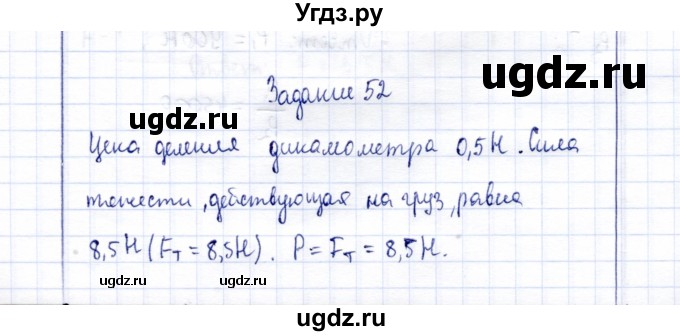 Угдз.ру
ugdz.ru
ugdz.ru
Задание 52
Цена деления динамометра 0,5Н. Сила
тяжести, действующая на груз, равна
8,5Н (Fт = 8,5Н). P = Fт = 8,5Н.
ugdz.ru
ugdz.ru
ugdz.ru